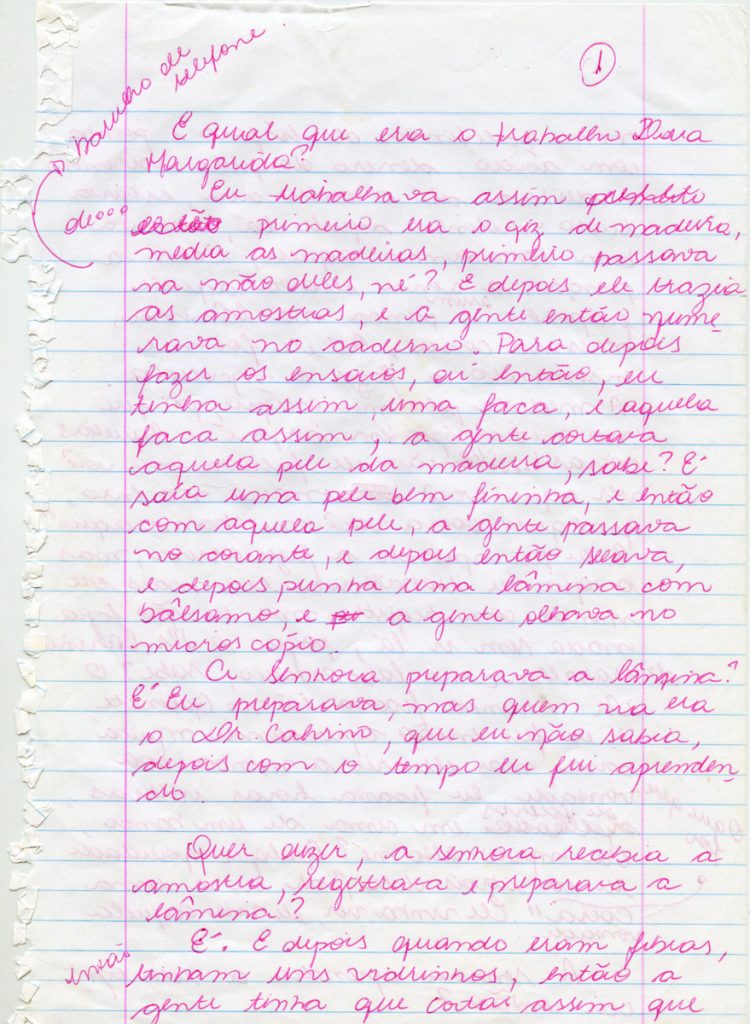 barulho de
telefone.
1
E qual que era o trabalho Dona
Margarida?
Eu trabalhava assim
de... primeiro era o giz de madeira,
media as madeiras, primeiro passava
na mão deles, né? E depois ele trazia
as amostras, e a gente então nume
rava no caderno. Para depois
fazer os ensaios, aí então, eu
tinha assim, uma faca, e aquela
faca assim, a gente cortava
aquela pele da madeira, sabe? E
saía uma pele bem fininha, e então
com aquela pele, a gente passava
no corante, e depois então secava,
e depois punha uma lâmina com
bálsamo, e a gente olhava no
microscópio.
A senhora preparava a lâmina?
É Eu preparava, mas quem via era
o Dr. , que eu não sabia,
depois com o tempo eu fui aprenden-
do.
Quer dizer, a senhora recebia a
amostra, registrava e preparava a
lâmina?
É. E depois quando eram fibras,
então tinham uns vidrinhos, então a
gente tinha que cortar assim que